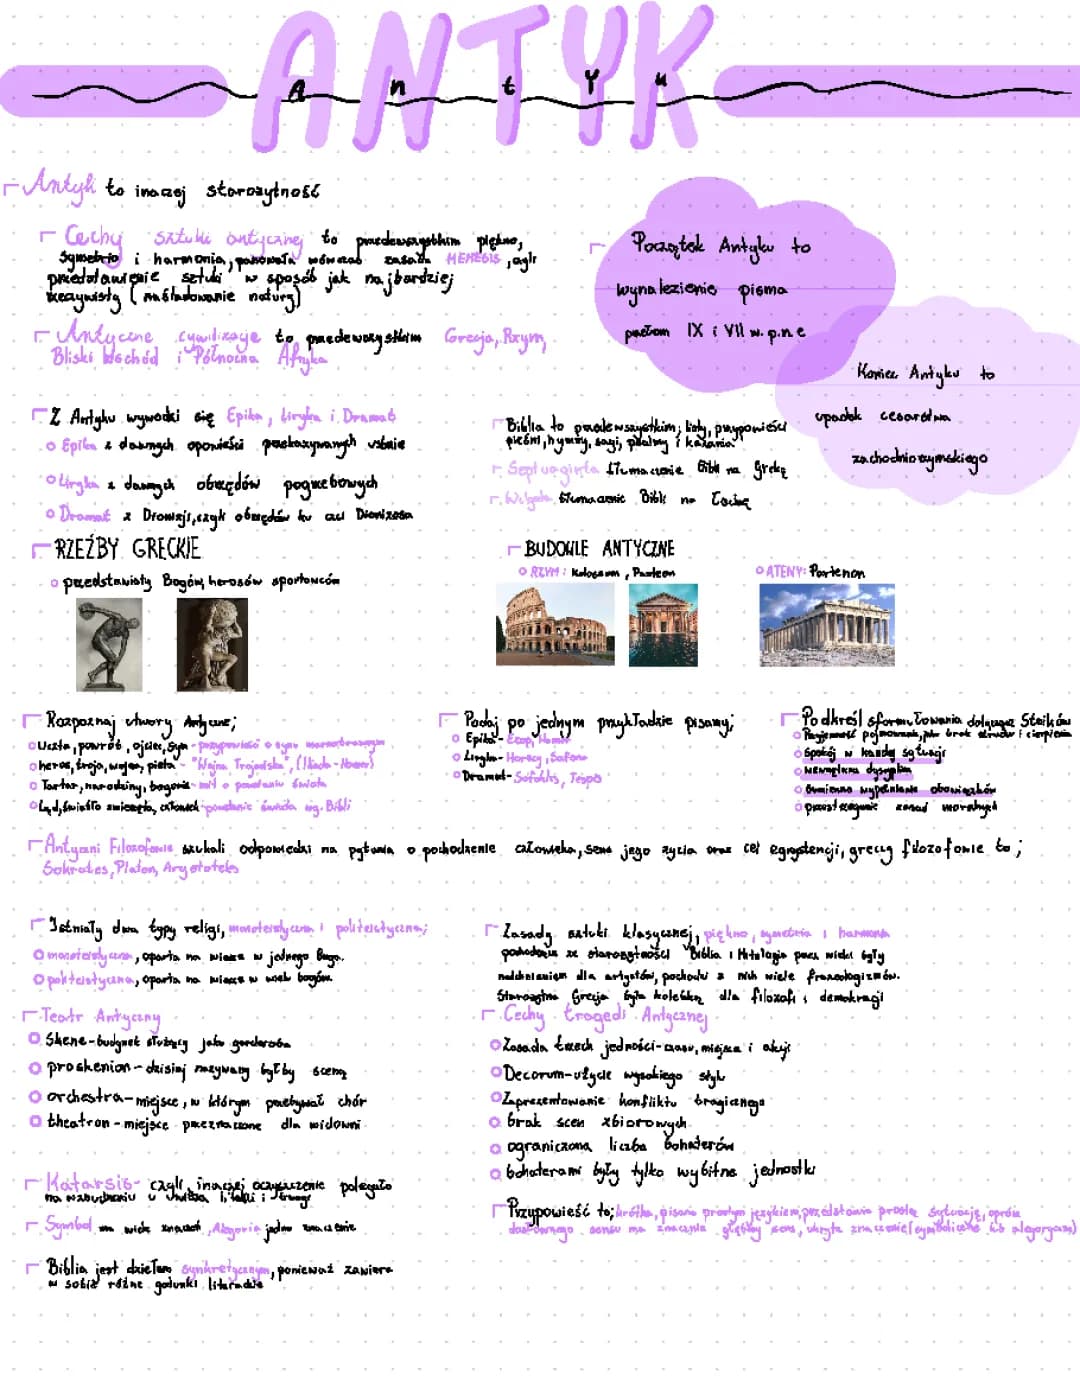 ANTYK
Antyk
Antyk to inaczej starożytność
Cechy sztuki antycznej to przedewszystkim piękno,
symetria i harmonia, panowała wówczas zasada MEMESIS, czyli
przedstawienie sztuki w sposób jak najbardziej
rzeczywisty (naśladowanie natury)
Początek Antyku to
wynalezienie pisma
IX i VII w. p.n.e
Antyczne cywilizacje to przedewszystkim Grecja, Rzym,
Bliski Wschód i Północna Afryka
Koniec Antyku to
upadek cesarstwa
zachodniorzymskiego
Z Antyku wywodzi się Epika, Liryka i Dramat
Epika z dawnych opowieści przekazywanych ustnie
Liryka z dawnych obrzędów pogrzebowych
Dramat z Dionizji, czyli obrzędów ku czci Dionizosa
Biblia to przedewszystkim; listy, przypowieści
pieśni, hymny, sagi, psalmy i kazania
Septuaginta tłumaczenie Bibli na Grekę
Wulgata tłumaczenie Bibli na Łacinę
RZEŹBY GRECKIE
przedstawiały Bogów, herosów sportowców
BUDOWLE ANTYCZNE
RZYM: Koloseum, Panteon
ATENY: Partenon
Rozpoznaj utwory Antyczne;
Uczta, powrót, ojciec, syn - przypowieść o synu marnotrawnym
heros, troja, wojna, pieta - "Wojna Trojańska", (Iliada - Homer)
Tartar, narodziny, bogowie - mit o powstaniu świata
Ląd, światło zwierzęta, człowiek - powstanie świata wg. Bibli
Podaj po jednym przykładzie pisarzy;
Epika - Ezop, Homer
Liryka - Horacy, Safona
Dramat - Sofokles, Tespis
Podkreśl sformułowania dotyczące Stoików
Przyjemność pojmowana, jako brak strachu i cierpienia
Spokój w każdej sytuacji
wewnętrzna dyscyplina
Sumienne wypełnianie obowiązków
przestrzeganie zasad moralnych
Antyczni Filozofowie szukali odpowiedzi na pytania o pochodzenie człowieka, sens jego życia oraz cel egzystencji, greccy filozofowie to;
Sokrates, Platon, Arystoteles
Istniały dwa typy religi, monoteistyczna i politeistyczna;
monoteistyczna, oparta na wierze w jednego Boga.
politeistyczna, oparta na wierze w wielu bogów.
Zasady sztuki klasycznej, piękno, symetria i harmonia
pochodzenie ze starożytności Biblia i Mitologia przez wieki były
natchnieniem dla artystów, pochodzi z nich wiele frazeologizmów.
Starożytna Grecja była kolebką dla filozofi i demokracji
Teatr Antyczny
Skene - budynek służący jako garderoba
proskenion - dzisiaj nazywany byłby sceną
orchestra - miejsce, w którym przebywał chór
theatron - miejsce przeznaczone dla widowni
Cechy tragedi Antycznej
Zasada trzech jedności - czasu, miejsca i akcji
Decorum - użycie wysokiego stylu
Zaprezentowanie konfliktu tragicznego
brak scen zbiorowych
ograniczona liczba bohaterów
bohaterami były tylko wybitne jednostki
Katarsis - czyli, inaczej oczyszczenie polegało
na wzbudzeniu u widza, litości i trwogi
Symbol ma wiele znaczeń, Alegoria jedno znaczenie
Przypowieść to; krótka, pisana prostym językiem, przedstawia prostą sytuację, oprócz
dosłownego sensu ma znaczenie głębszy sens, ukryte znaczenie (symboliczne lub alegoryczne)
Biblia jest dziełem synkretycznym, ponieważ zawiera
w sobie różne gatunki literackie